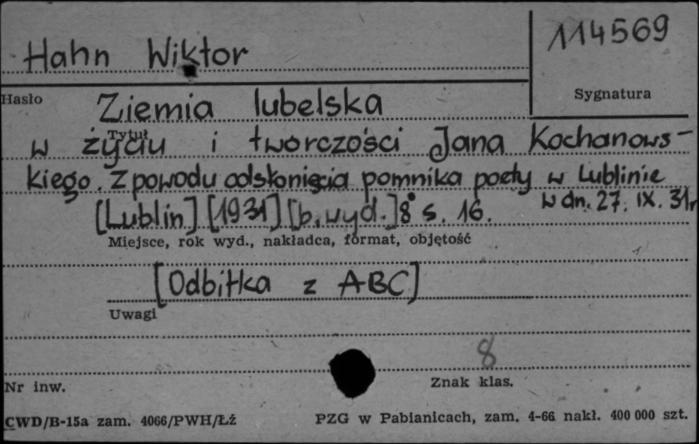 Hahn Wiktor
114569
Hasło
Sygnatura
Ziemia lubelska
Tytuł
w życiu i twórczości Jana Kochanows-
kiego. Z powodu odsłonięcia pomnika poety w Lublinie
w dn. 27. IX. 31r
[Lublin] [1931] [b. wyd.] 8° s. 16.
Miejsce, rok wyd., nakładca, format, objętość
[Odbitka z ABC]
Uwagi
8
Nr inw.
Znak klas.
CWD/B-15a zam. 4066/PWH/Łż
PZG w Pabianicach, zam. 4-66 nakł. 400 000 szt.